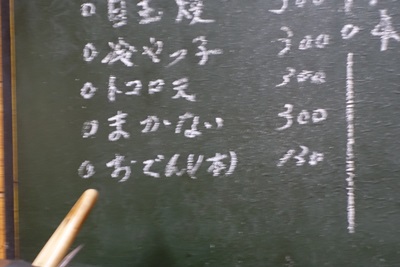 ○目玉焼 300
○冷やっ子 300
○トコロ天 300
○まかない 300
○おでん(1本) 130
○